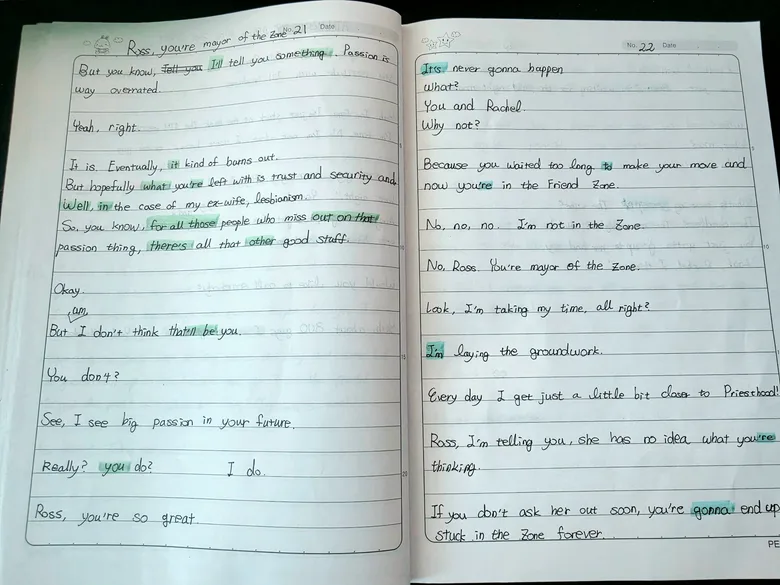 Ross, you're mayor of the Zone No. 21 Date
But you know, Tell you I'll tell you something. Passion is
way overrated.
Yeah, right.
It is. Eventually, it kind of burns out.
But hopefully what you're left with is trust and security and
Well, in the case of my ex-wife, lesbianism.
So, you know, for all those people who miss out on that
passion thing, there's all that other good stuff.
Okay.
um,
But I don't think that'll be you.
You don't?
See, I see big passion in your future.
Really? you do? I do.
Ross, you're so great.
No. 22 Date
It's never gonna happen
What?
You and Rachel.
Why not?
Because you waited too long to make your move and
now you're in the Friend Zone.
No, no, no. I'm not in the Zone.
No, Ross. You're mayor of the Zone.
Look, I'm taking my time, all right?
I'm laying the groundwork.
Every day I get just a little bit closer to Priesthood!
Ross, I'm telling you, she has no idea what you're
thinking.
If you don't ask her out soon, you're gonna end up
stuck in the Zone forever.
5
10
15
20
5
10
PE